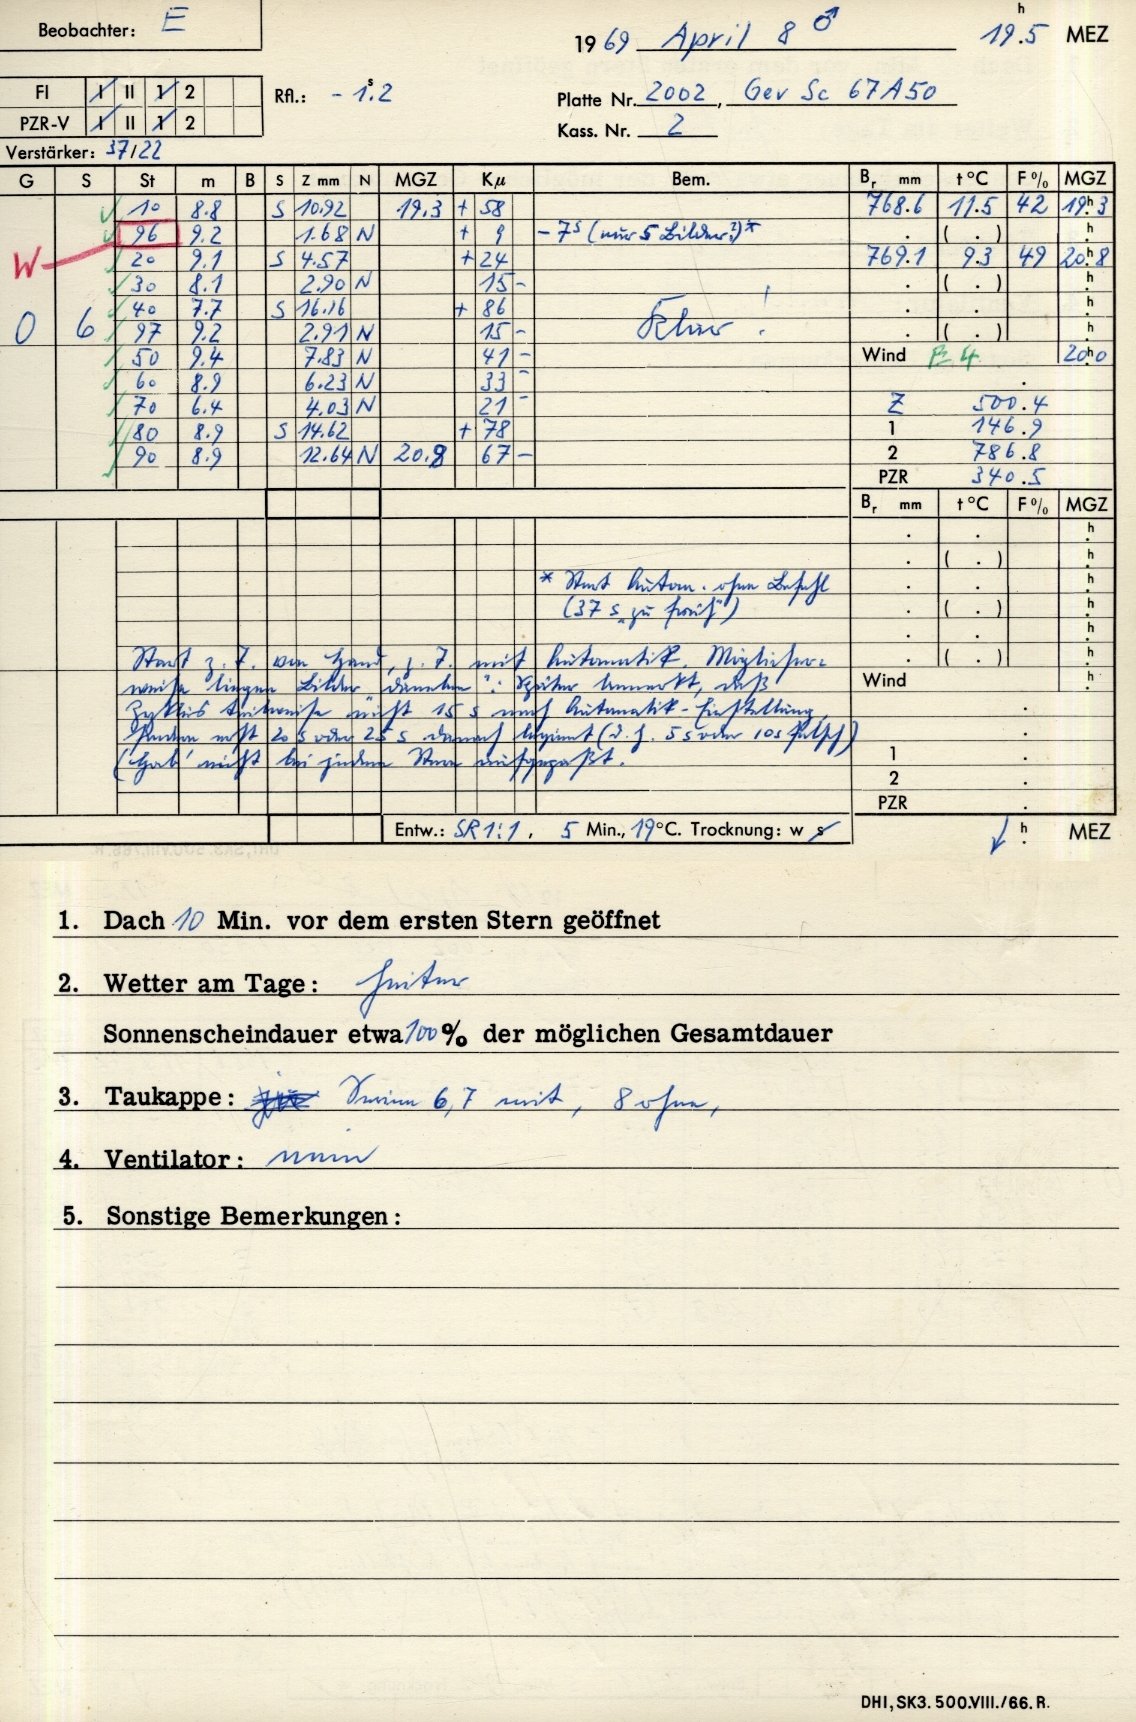 Beobachter: E
1969 April 8 ♂ 19.5 h MEZ
FI I II 1 2
Rfl.: - 1.s2
Platte Nr. 2002, Gev Sc 67A50
PZR-V I II 1 2
Kass. Nr. 2
Verstärker: 37/22
G S St m B S Z mm N MGZ Kμ Bem. Br mm t °C F % MGZ
10 8.8 S 10.92 19.3 + 58 768.6 11.5 42 19.h3
96 9.2 1.68 N + 9 - 7s (nur 5 Bilder?)* . ( . ) h
W 20 9.1 S 4.57 + 24 769.1 9.3 49 20.h8
30 8.1 2.90 N 15 - . ( . ) h
40 7.7 S 16.16 + 86 . . h
O 6 97 9.2 2.91 N 15 - Klar! . ( . ) h
50 9.4 7.83 N 41 - Wind 4 20.h0
60 8.9 6.23 N 33 - .
70 6.4 4.03 N 21 - Z 500.4
80 8.9 S 14.62 + 78 1 146.9
90 8.9 12.64 N 20.8 67 - 2 786.8
PZR 340.5
Br mm t °C F % MGZ
. . h
. ( . ) h
* Start Autom. ohne Befehl . . h
(37 s „zu früh") . ( . ) h
. . h
Start z. T. von Hand, z. T. mit Automatik. Möglicher- . ( . ) h
weise liegen Bilder „daneben": Später bemerkt, daß Wind
Zyklus teilweise nicht 15 s nach Automatik-Einstellung, .
sondern erst 20 s oder 25 s danach beginnt (d. h. 5 s oder 10 s falsch) .
(Hab' nicht bei jedem Stern aufgepaßt. 1 .
2 .
PZR .
Entw.: SR 1:1, 5 Min., 19 °C. Trocknung: w s
h MEZ
1. Dach 10 Min. vor dem ersten Stern geöffnet
2. Wetter am Tage: heiter
Sonnenscheindauer etwa 100 % der möglichen Gesamtdauer
3. Taukappe: 6,7 mit, 8 ohne,
4. Ventilator: nein
5. Sonstige Bemerkungen:
DHI, SK3. 500.VIII./66. R.